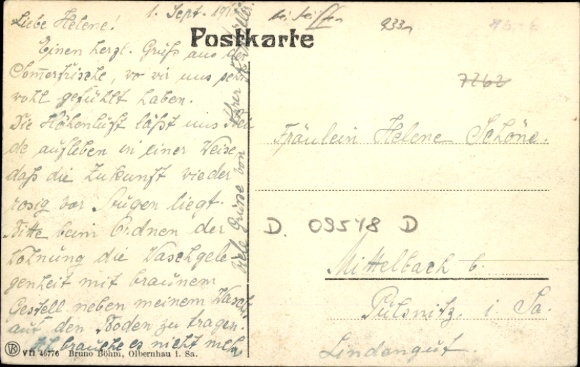 Postkarte
Liebe Helene!
1. Sept. 191
Einen herzl. Gruß aus d
Sommerfrische, wo wir uns
wohl gefühlt haben.
Die Höhenluft läßt uns
de aufleben in einer Weise
daß die Zukunft wieder
rosig vor Augen liegt.
Bitte beim Ordnen der
Wohnung die Waschgele
genheit mit braunem
Gestell neben meinem
auf den Boden zu tragen.
Ich brauche es nicht mehr
Viele Grüsse von
9331
7262
Fräulein Helene Schöne.
D. 09548 D
Mittelbach b.
Pulsnitz i Sa.
Lindengut.
VTI 46776 Bruno Böhm, Olbernhau i. Sa.